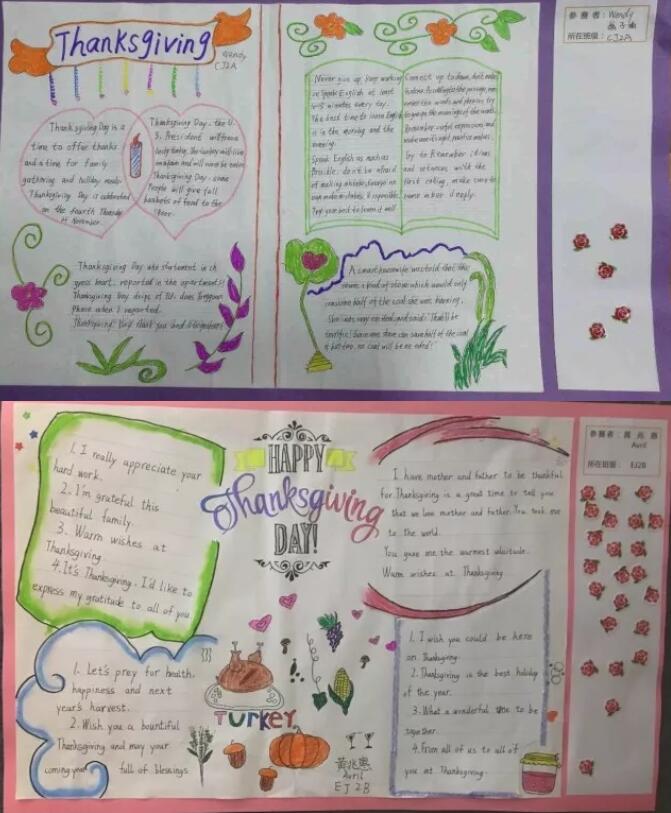 Thanksgiving
Wendy
CJ2A
Thanksgiving Day is a
time to offer thanks
and a time for family
gathering and holiday meals
Thanksgiving Day is celebrated
on the fourth Thursday
of November.
Thanksgiving Day, the U.
S. President will
Thanksgiving Day, some
People will give full
baskets of food to the
Poor.
Thanksgiving Day
heart, reported in the apartments!
Thanksgiving Day
Phone when I reported.
Thanksgiving Day thank you
Never give up, keep working
Speak English at least
minutes every day.
The best time to learn English
is in the morning and the
evening.
Speak English as much as
Possible, don't be afraid
of making mistakes
Try your best to learn it well
Connect up to down
the meanings of the words.
Remember useful expressions and
Try to Remember idioms
and sentences with the
remember deeply.
A smart housewife was told that there
was a kind of stove which would only
consume half of the coal she was burning.
She was very excited, and said: "That'll be
terrific! Since one stove can save half of the coal
if I buy two, no coal will be needed!"
参赛者: Wendy
所在班级: CJ2A
1. I really appreciate your
hard work.
2. I'm grateful this
beautiful family.
3. Warm wishes at
Thanksgiving.
4. It's Thanksgiving. I'd like to
express my gratitude to all of you
HAPPY
Thanksgiving
DAY!
I have mother and father to be thankful
for. Thanksgiving is a great time to tell you
that we love mother and father. You took me
to the world.
You gave me the warmest
Warm wishes at Thanksgiving
1. Let's prey for health,
happiness and next
year's harvest.
2. Wish you a bountiful
Thanksgiving and may your
coming year full of blessings
TURKEY
黄兆惠
Avril
EJ2B
1. I wish you could be here
on Thanksgiving.
2. Thanksgiving is the best holiday
of the year.
3. What a wonderful time to be
together.
4. From all of us to all of
you at Thanksgiving.
参赛者: 黄兆惠
Avril
所在班级: EJ2B